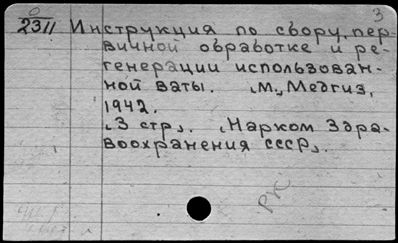 3
0
2311 Инструкция по сбору, пер-
вичной обработке и ре-
генерации использован-
ной ваты. М., Медгиз,
1942.
3 стр. Нарком Здра-
воохранения СССР.
РК